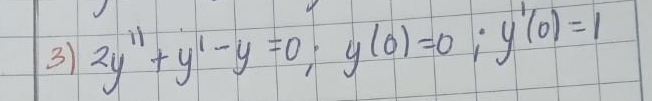 3) 2y'' + y' - y = 0; y(0) = 0; y'(0) = 1